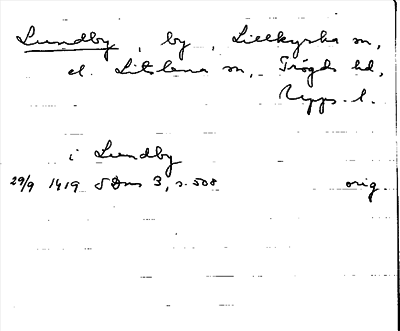 Lundby, by, Lillkyrka sn,
el. Litslena sn, Trögds hd,
Upps. l.
i Lundby
29/9 1419 SDns 3, s. 508 orig.